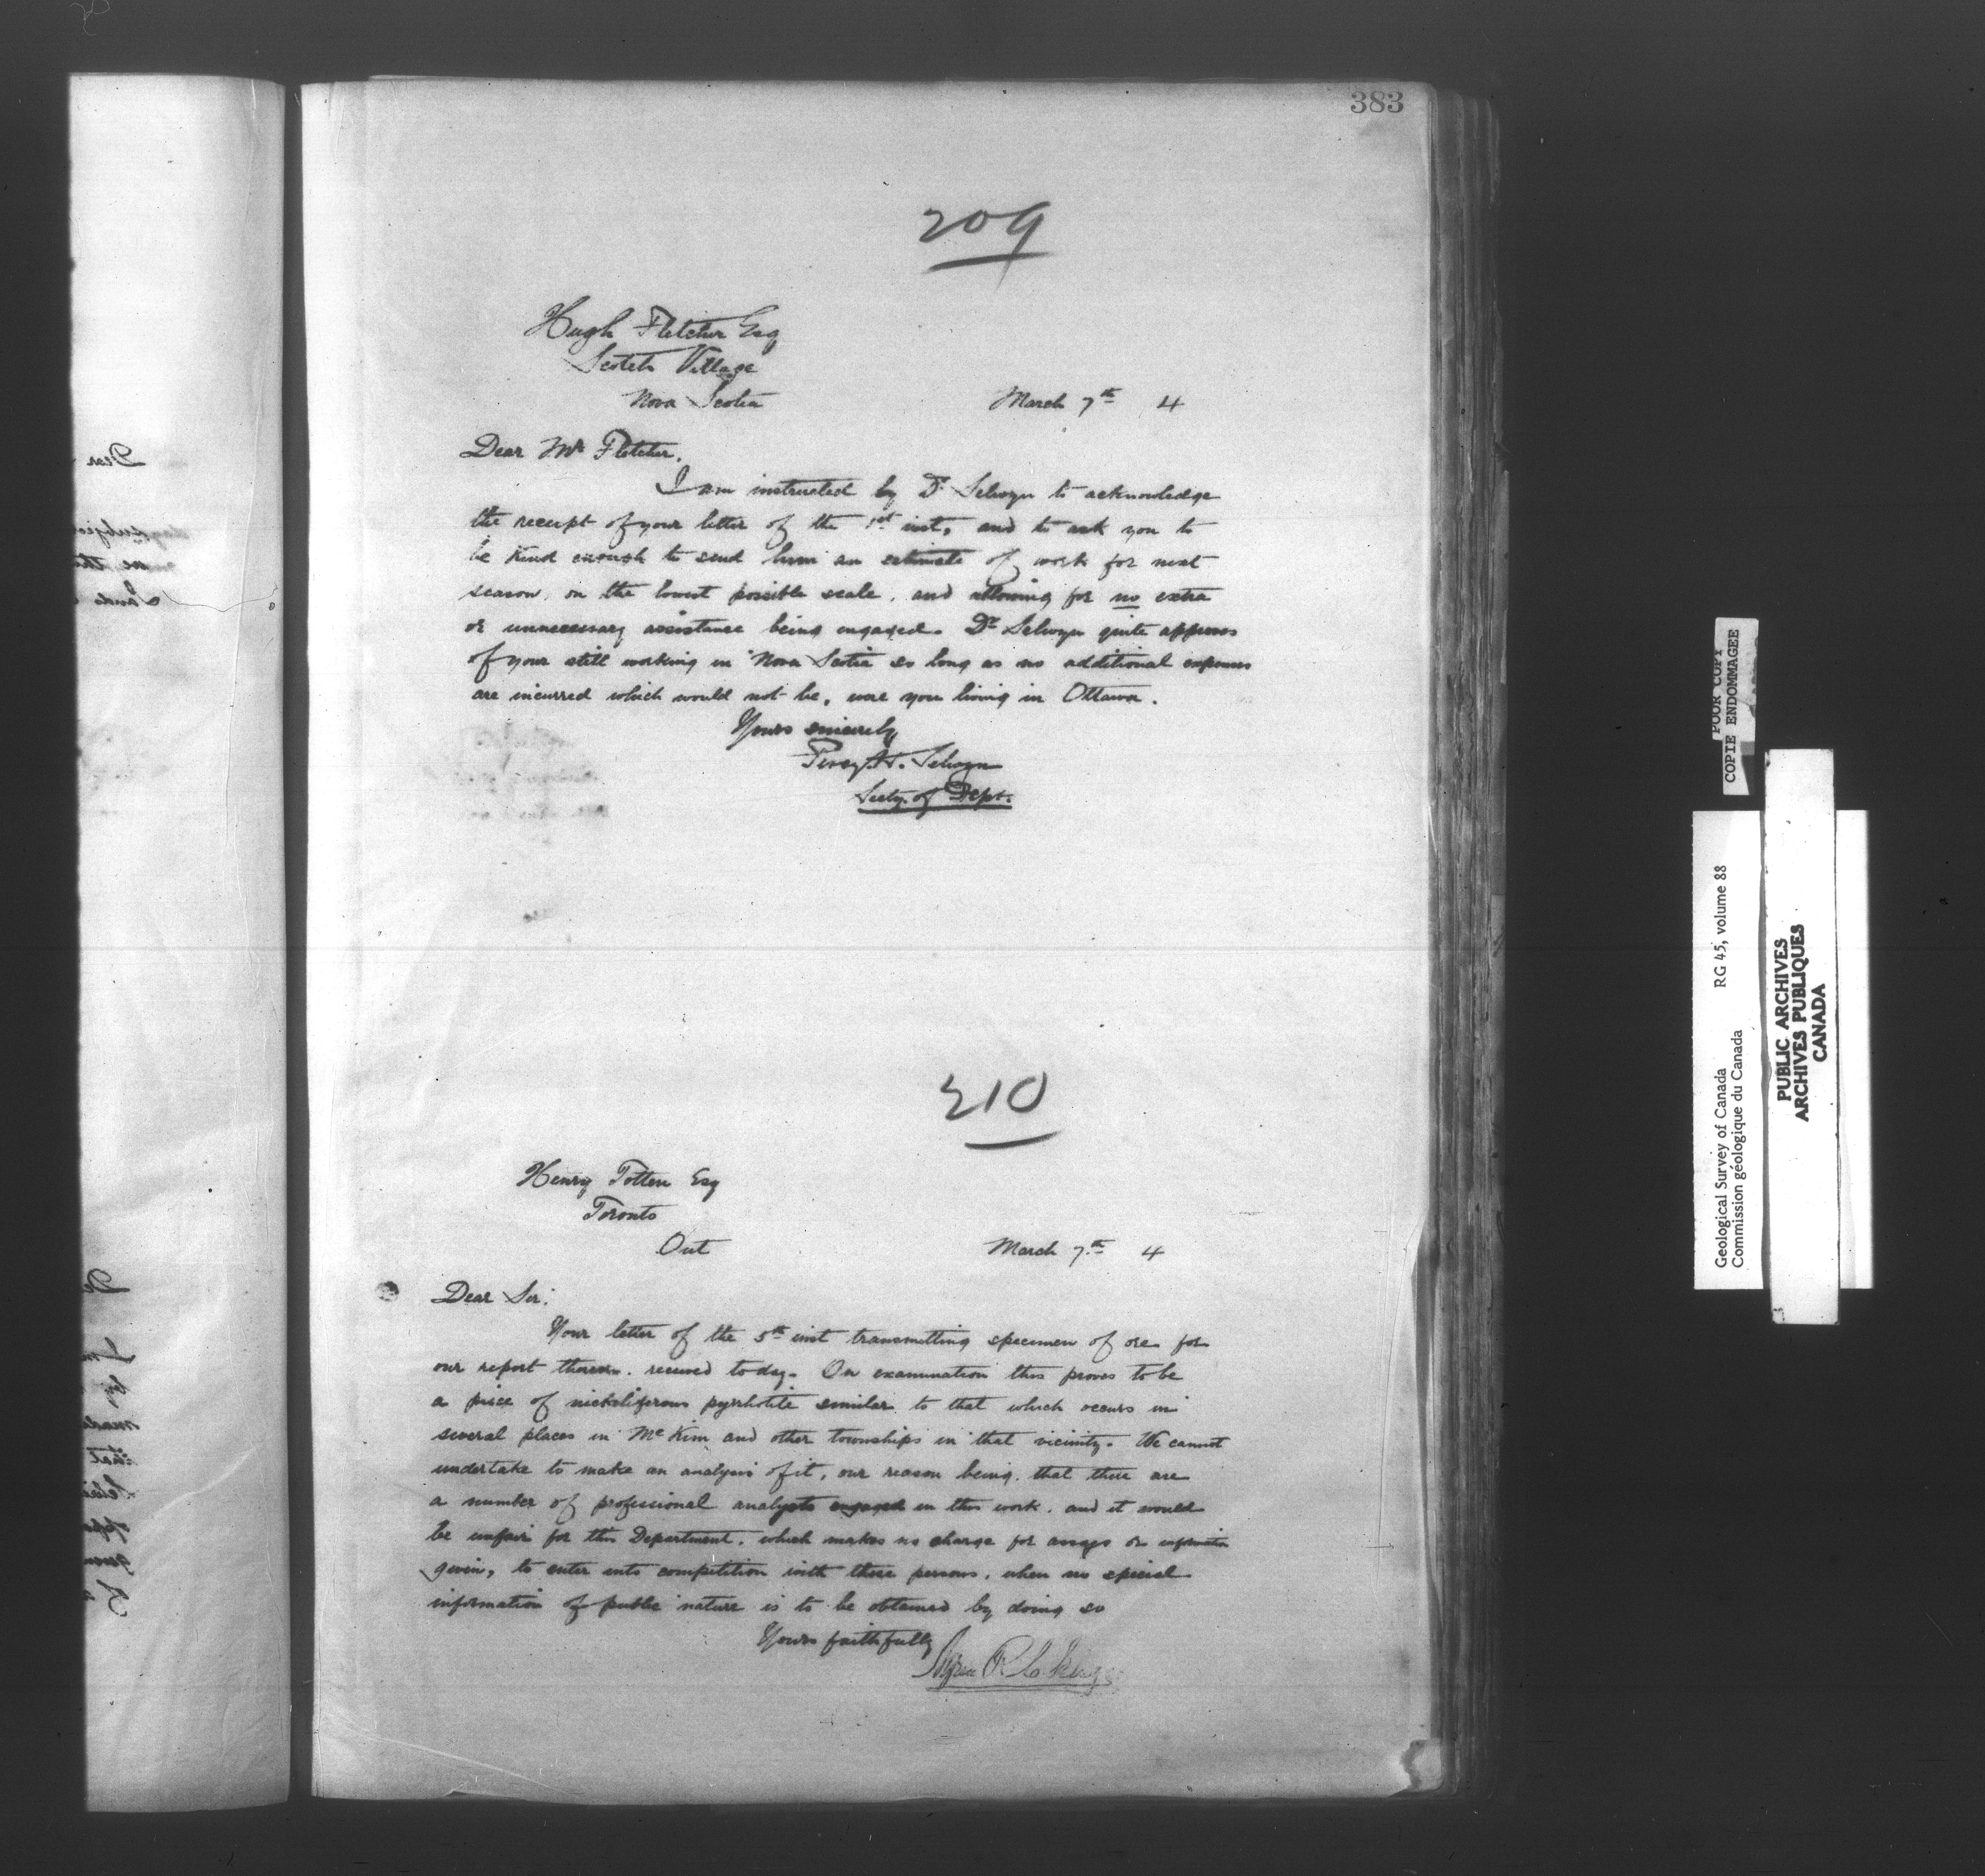 383
209
Hugh Fletcher Esq
Scotch Village
Nova Scotia
March 7th 4
Dear Mr Fletcher,
I am instructed by Dr Selwyn to acknowledge
the receipt of your letter of the 1st inst, and to ask you to
be kind enough to send him an estimate of work for next
season, on the lowest possible scale, and allowing for no extra
or unnecessary assistance being engaged. Dr Selwyn quite approves
of your still working in Nova Scotia so long as no additional expenses
are incurred which would not be, were you living in Ottawa.
Yours sincerely
Percy H. Selwyn
Secty. of Dept.
210
Henry Totten Esq
Toronto
Ont
March 7th 4
Dear Sir:
Your letter of the 5th inst transmitting specimen of ore for
our report thereon, received today. On examination this proves to be
a piece of nickeliferous pyrrhotite similar to that which occurs in
several places in McKim and other townships in that vicinity. We cannot
undertake to make an analysis of it, our reason being, that there are
a number of professional analysts engaged in this work, and it would
be unfair for this Department, which makes no charge for assays or information
given, to enter into competition with these persons, when no special
information of public nature is to be obtained by doing so
Yours faithfully
Dear
subjec
Lands
De
made
that
POOR COPY
COPIE ENDOMMAGEE
Geological Survey of Canada RG 45, volume 88
Commission géologique du Canada
PUBLIC ARCHIVES
ARCHIVES PUBLIQUES
CANADA